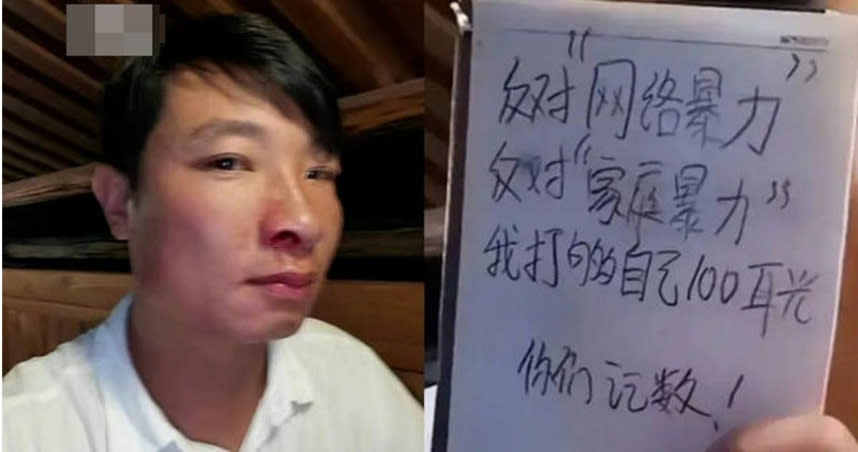 反对"网络暴力"
反对"家庭暴力"
我打够自己100耳光
你们记数！